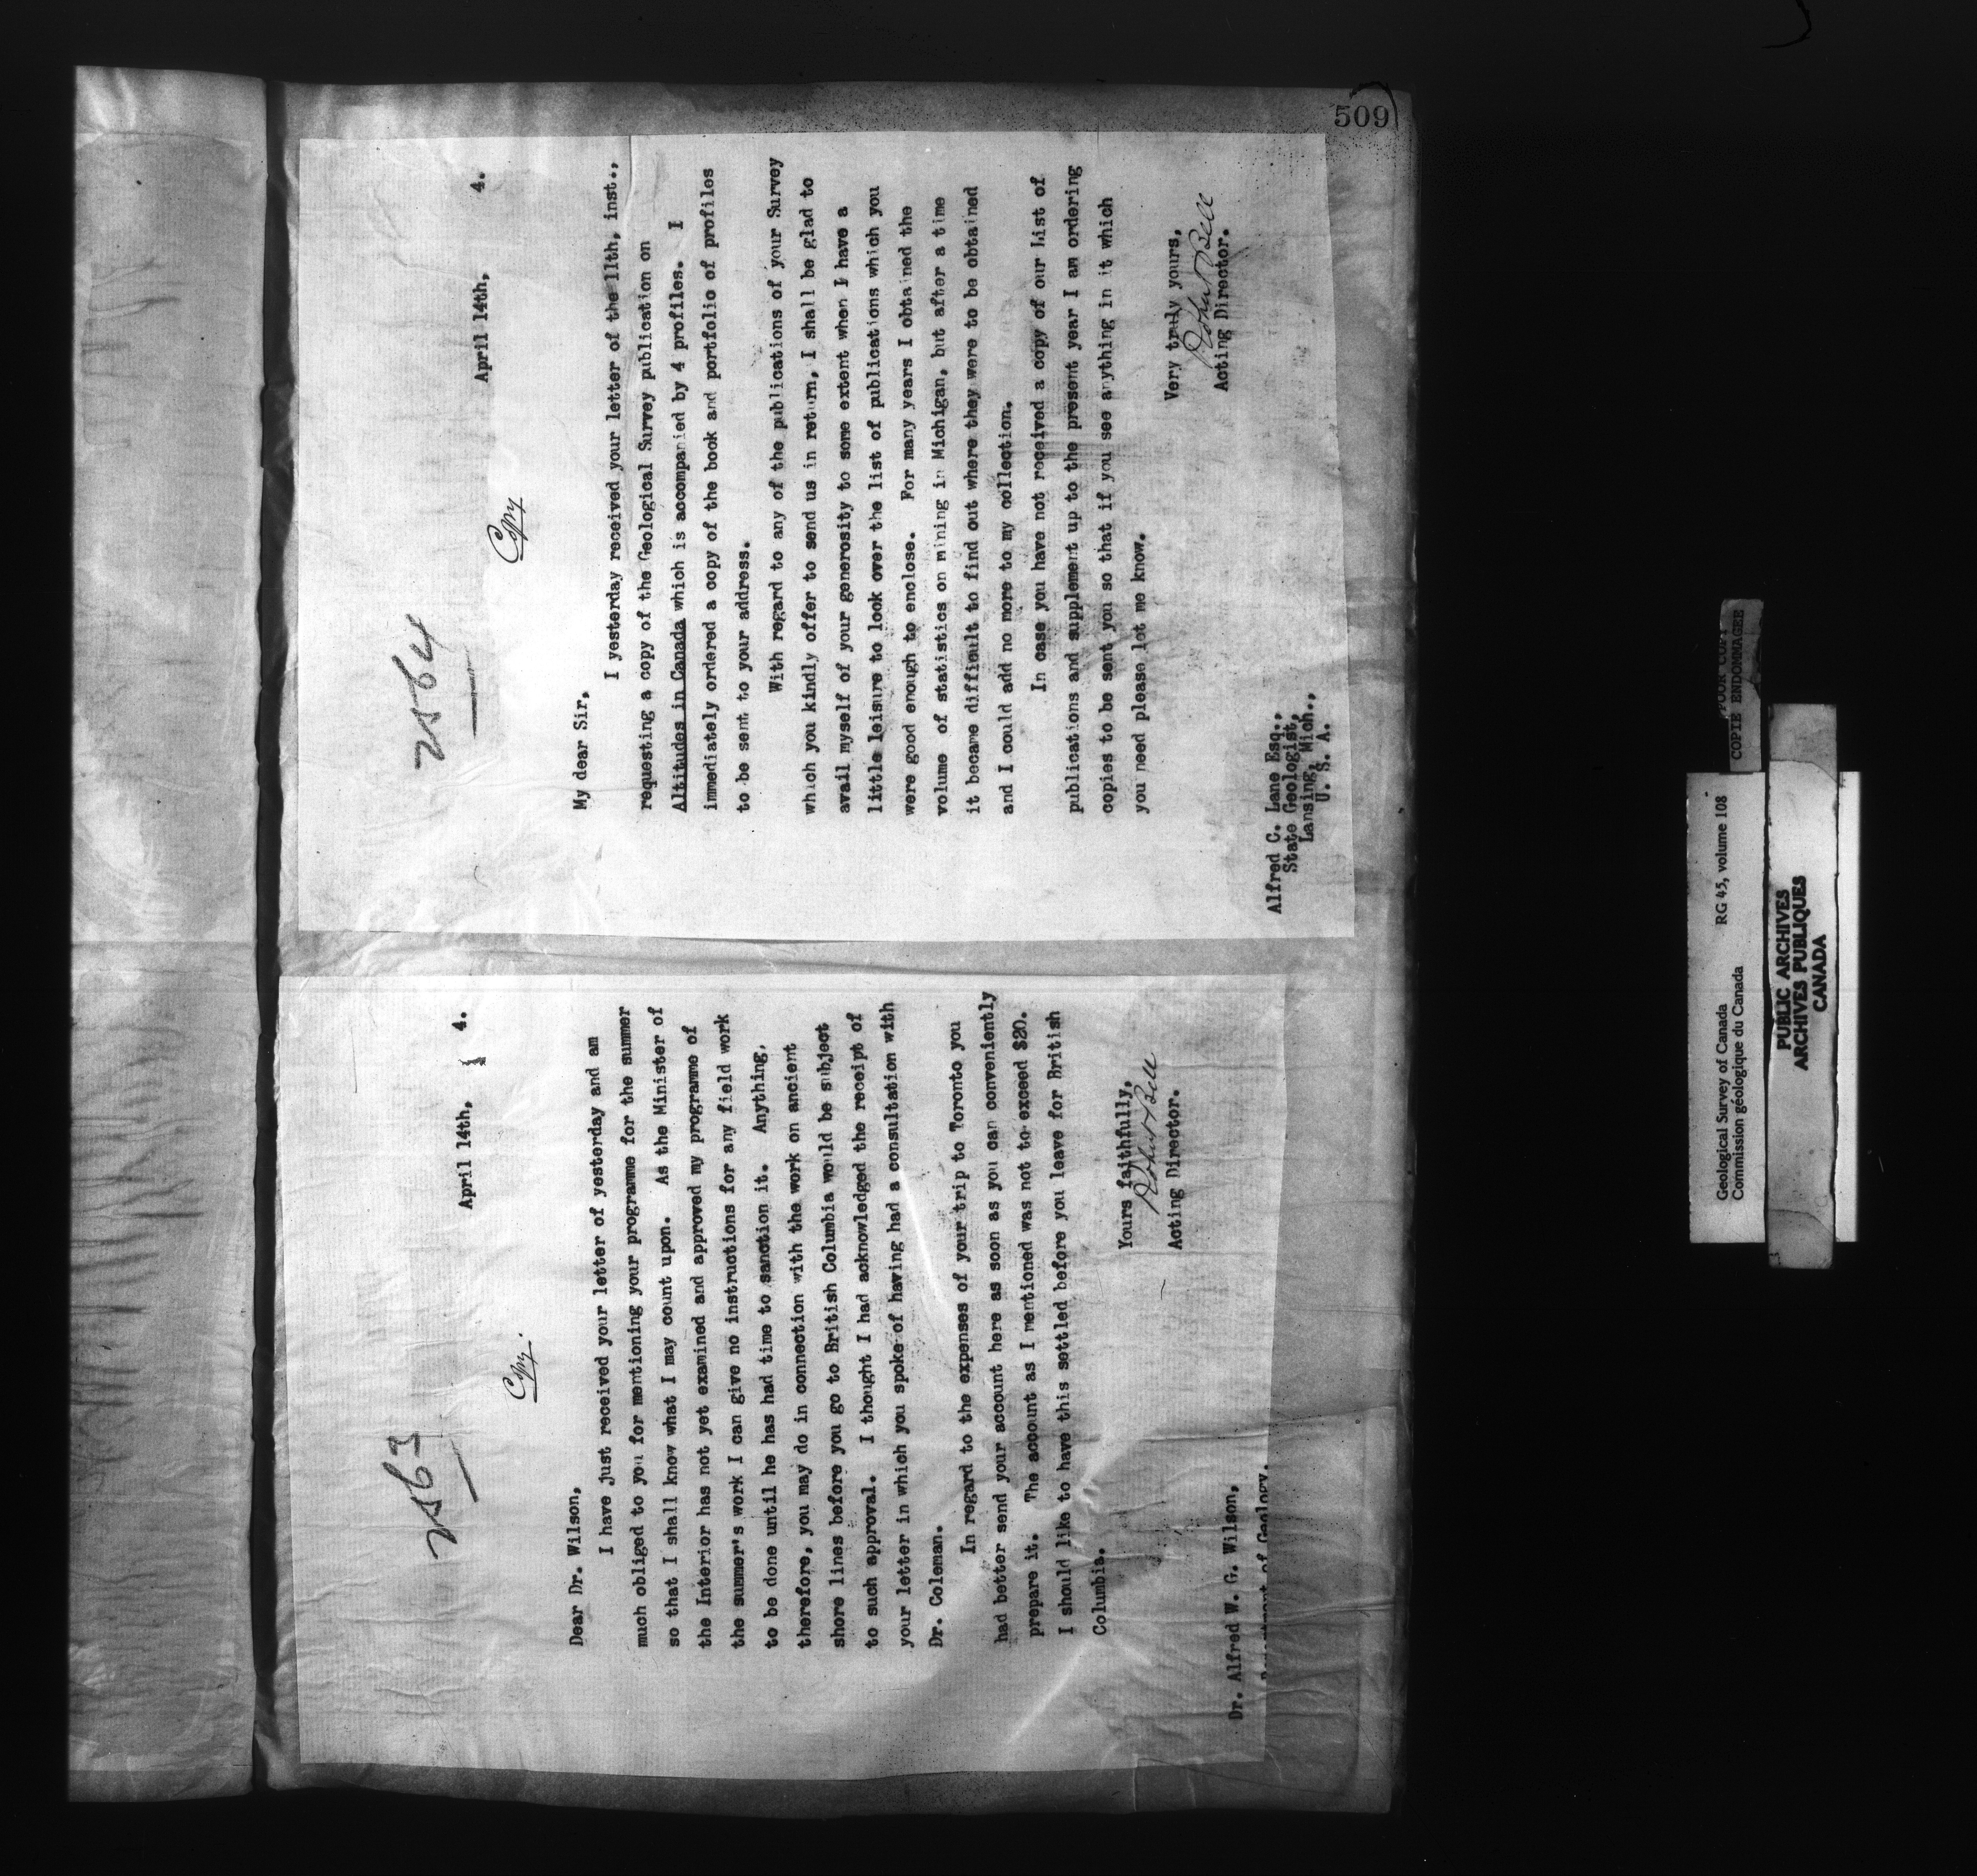 509
2563
April 14th, 4.
Copy.
Dear Dr. Wilson,
I have just received your letter of yesterday and am
much obliged to you for mentioning your programme for the summer
so that I shall know what I may count upon. As the Minister of
the Interior has not yet examined and approved my programme of
the summer's work I can give no instructions for any field work
to be done until he has had time to sanction it. Anything,
therefore, you may do in connection with the work on ancient
shore lines before you go to British Columbia would be subject
to such approval. I thought I had acknowledged the receipt of
your letter in which you spoke of having had a consultation with
Dr. Coleman.
In regard to the expenses of your trip to Toronto you
had better send your account here as soon as you can conveniently
prepare it. The account as I mentioned was not to exceed $20.
I should like to have this settled before you leave for British
Columbia.
Yours faithfully,
Robert Bell
Acting Director.
Dr. Alfred W. G. Wilson,
Department of Geology.
2564
April 14th, 4.
Copy
My dear Sir,
I yesterday received your letter of the 11th, inst.,
requesting a copy of the Geological Survey publication on
Altitudes in Canada which is accompanied by 4 profiles. I
immediately ordered a copy of the book and portfolio of profiles
to be sent to your address.
With regard to any of the publications of your Survey
which you kindly offer to send us in return, I shall be glad to
avail myself of your generosity to some extent when I have a
little leisure to look over the list of publications which you
were good enough to enclose. For many years I obtained the
volume of statistics on mining in Michigan, but after a time
it became difficult to find out where they were to be obtained
and I could add no more to my collection.
In case you have not received a copy of our List of
publications and supplement up to the present year I am ordering
copies to be sent you so that if you see anything in it which
you need please let me know.
Very truly yours,
Robert Bell
Acting Director.
Alfred C. Lane Esq.,
State Geologist,
Lansing, Mich.,
U. S. A.
POOR COPY
COPIE ENDOMMAGEE
Geological Survey of Canada RG 45, volume 108
Commission géologique du Canada
PUBLIC ARCHIVES
ARCHIVES PUBLIQUES
CANADA